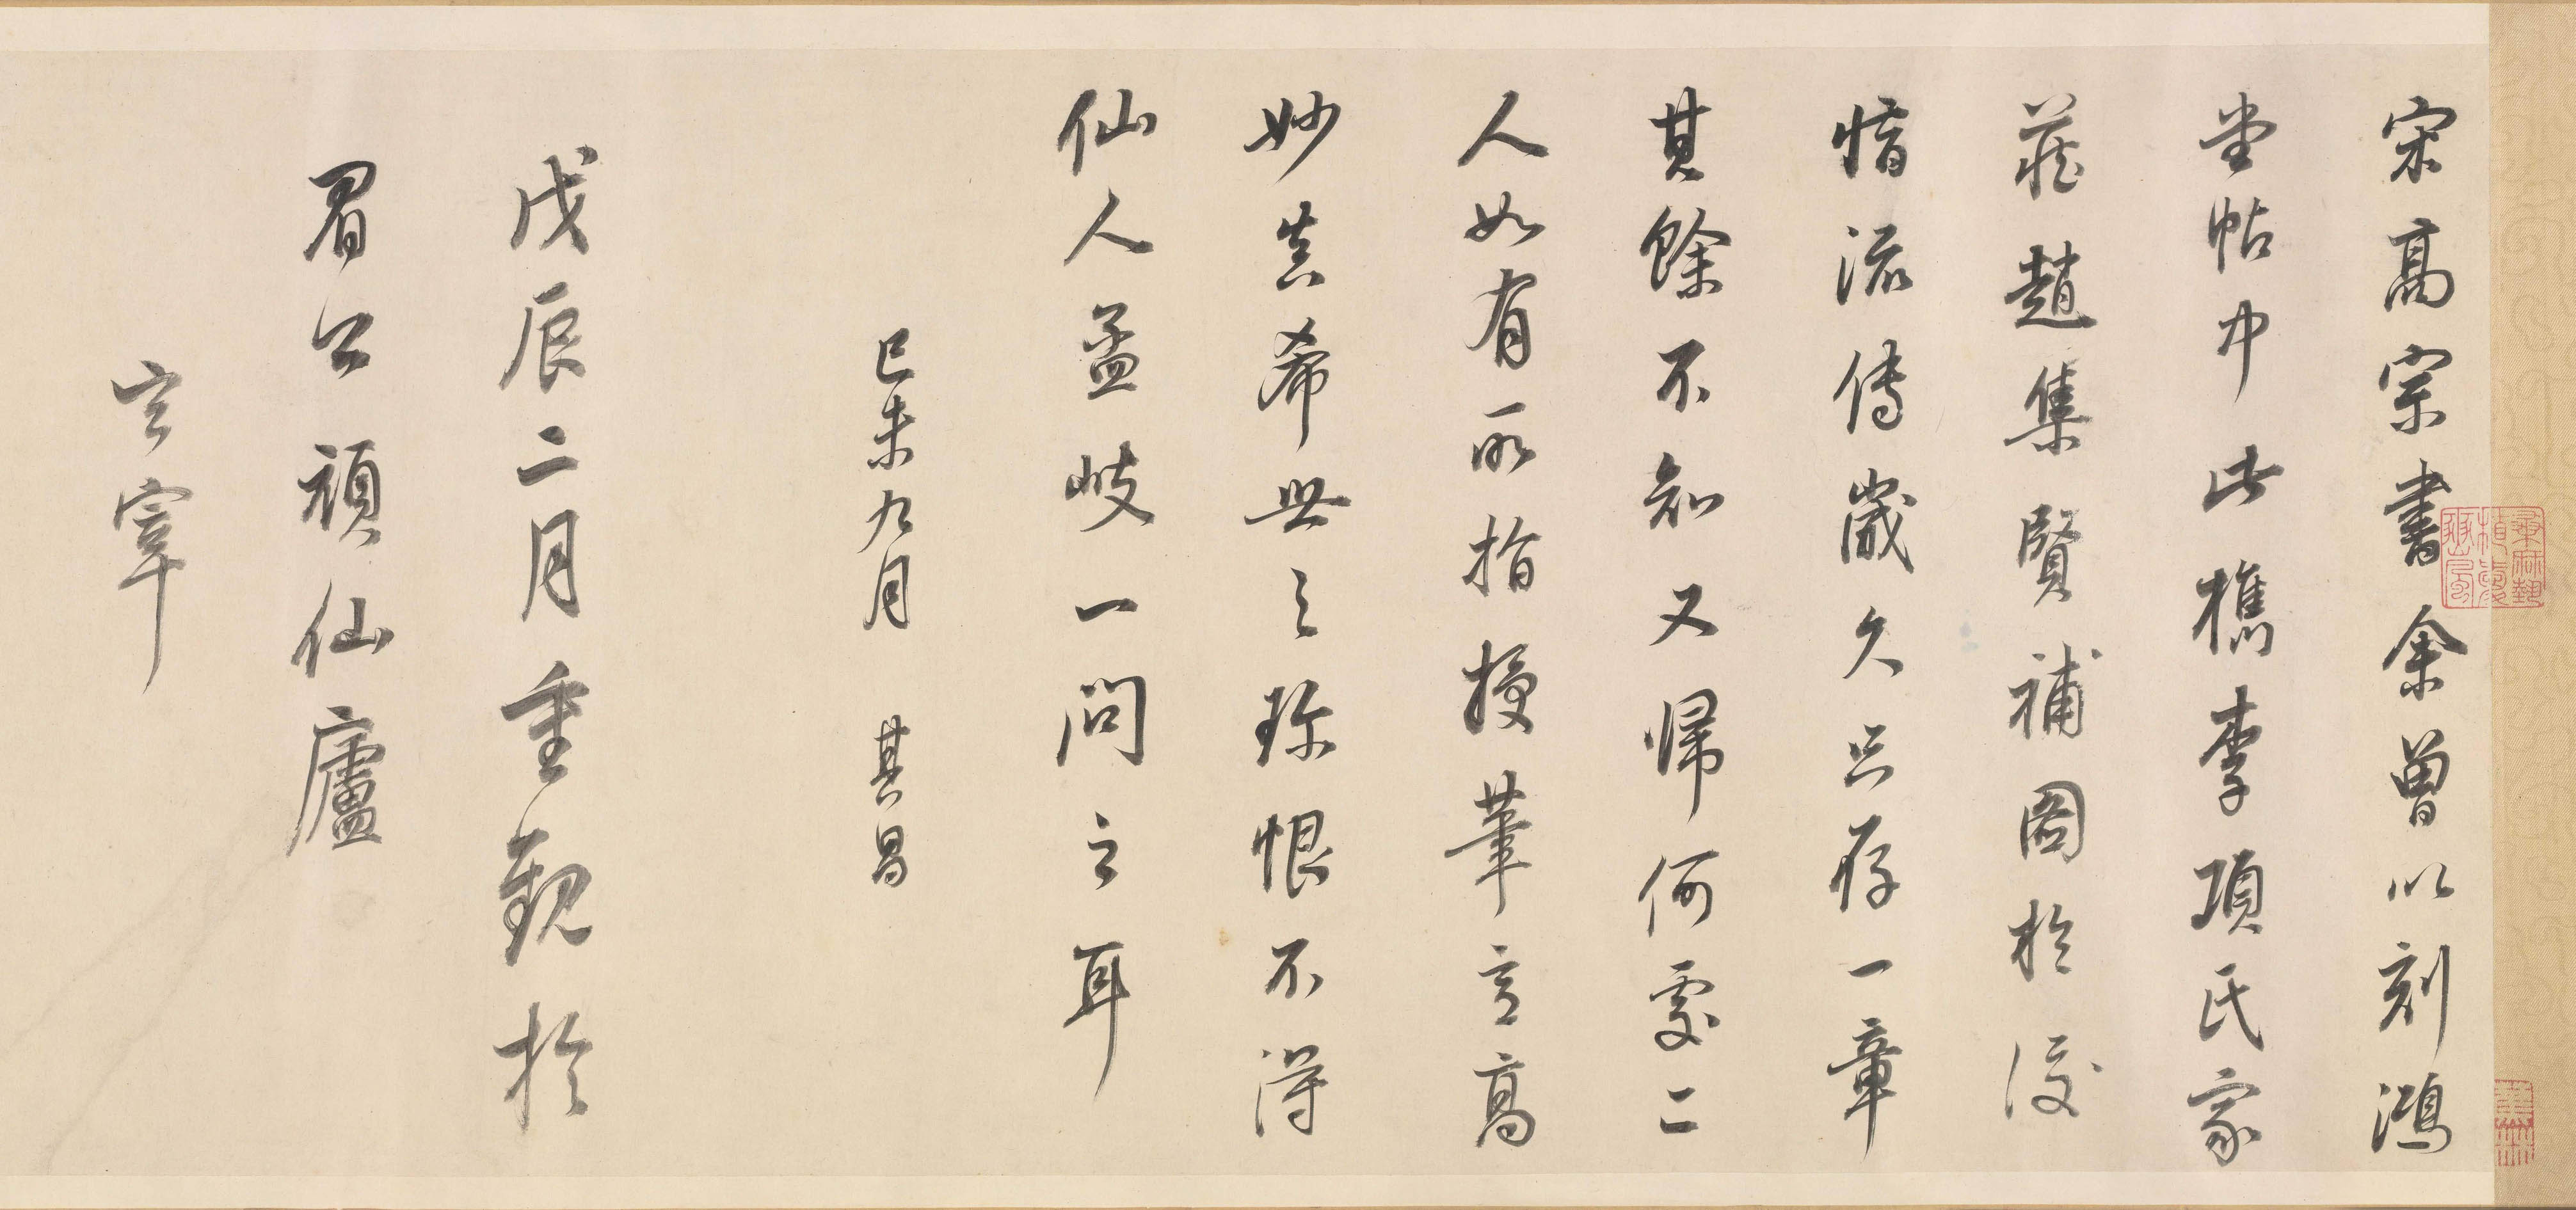 宋高宗書余曾以刻鴻
堂帖中此檇李項氏家
藏趙集賢補圖於後
惜流傳歲久只存一章
其餘不知又歸何處二
人如有所指授筆意高
妙真希世之珍恨不得
仙人孟岐一問之耳
己未九月 其昌
戊辰二月重觀於
眉公頑仙廬
玄宰